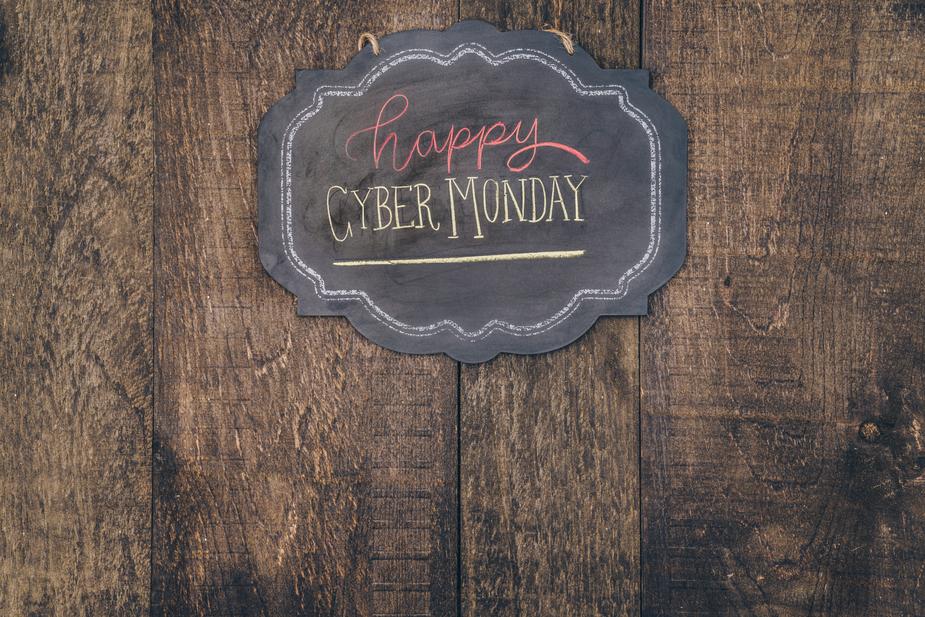 happy
CYBER MONDAY